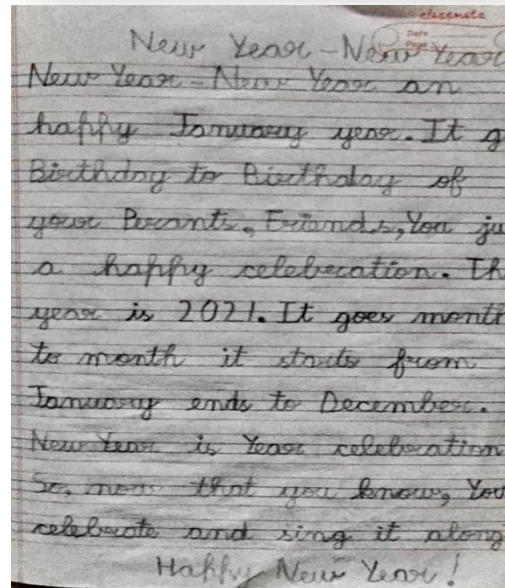 classmate
Date
Page
New Year - New Year
New Year - New Year an
happy January year. It g
Birthday to Birthday of
your Perants, Friends, You ju
a happy celebration. Th
year is 2021. It goes month
to month it starts from
January ends to December.
New Year is Year celebration
So, now that you know, You
celebrate and sing it along
Happy New Year!